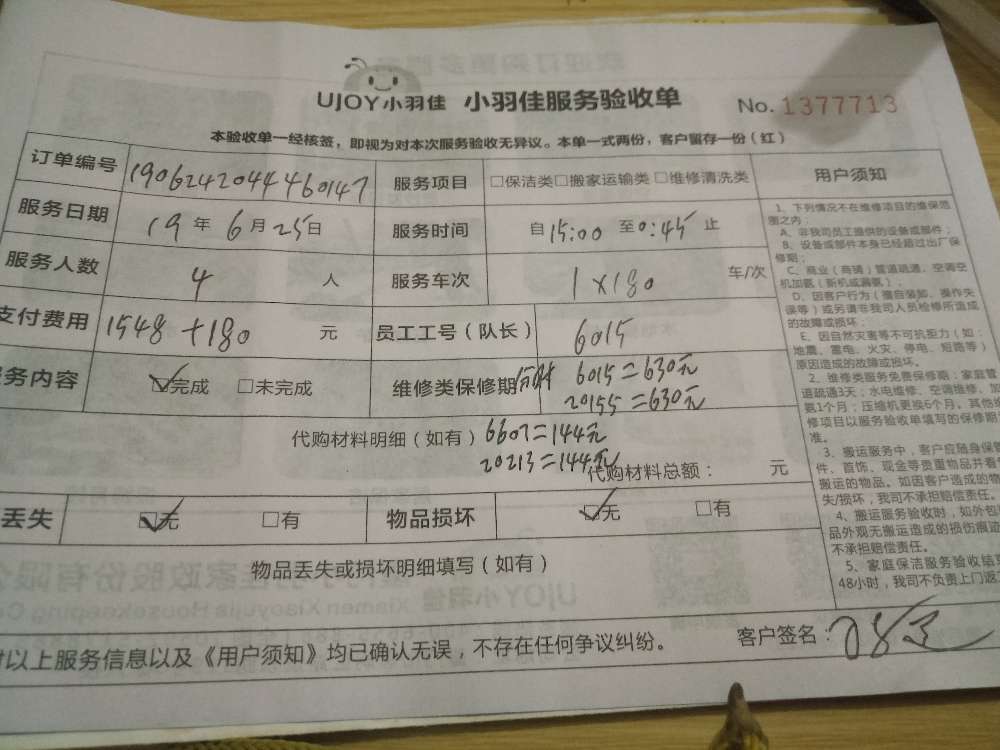 UJOY小羽佳 小羽佳服务验收单 No.1377713
本验收单一经核签，即视为对本次服务验收无异议。本单一式两份，客户留存一份（红）
订单编号 19062420444460147 服务项目 □保洁类□搬家运输类□维修清洗类
服务日期 19年6月25日 服务时间 自15:00至0:45止
服务人数 4人 服务车次 1×180 车/次
支付费用 1548+180 元 员工工号（队长） 6015
务内容 ☑完成 □未完成 维修类保修期 6015=630元
20155=630元
代购材料明细（如有） 6607=144元
20213=144元
代购材料总额： 元
丢失 ☑无 □有 物品损坏 ☑无 □有
物品丢失或损坏明细填写（如有）
以上服务信息以及《用户须知》均已确认无误，不存在任何争议纠纷。
客户签名：
用户须知
1、下列情况不在维修项目的维保范
围之内：
A、非我司员工提供的设备或部件；
B、设备或部件本身已经超过出厂保
修期；
C、商业（商铺）管道疏通，空调空
机加氨（新机或漏氨）；
D、因客户行为（擅自装卸、操作失
误等）或另请非我司人员检修所造成
的故障或损坏；
E、因自然灾害等不可抗拒力（如：
地震、雷电、火灾、停电、短路等）
原因造成的故障或损坏。
2、维修类服务免费保修期：家庭管
道疏通3天；水电维修、空调维修、加
氨1个月；压缩机更换6个月。其他维
修项目以服务验收单填写的保修期
准。
3、搬运服务中，客户应随身保管
件、首饰、现金等贵重物品并看管
搬运的物品。如因客户造成的物
失/损坏，我司不承担赔偿责任。
4、搬运服务验收时，如外包
品外观无搬运造成的损伤痕迹
不承担赔偿责任。
5、家庭保洁服务验收结束
48小时，我司不负责上门返